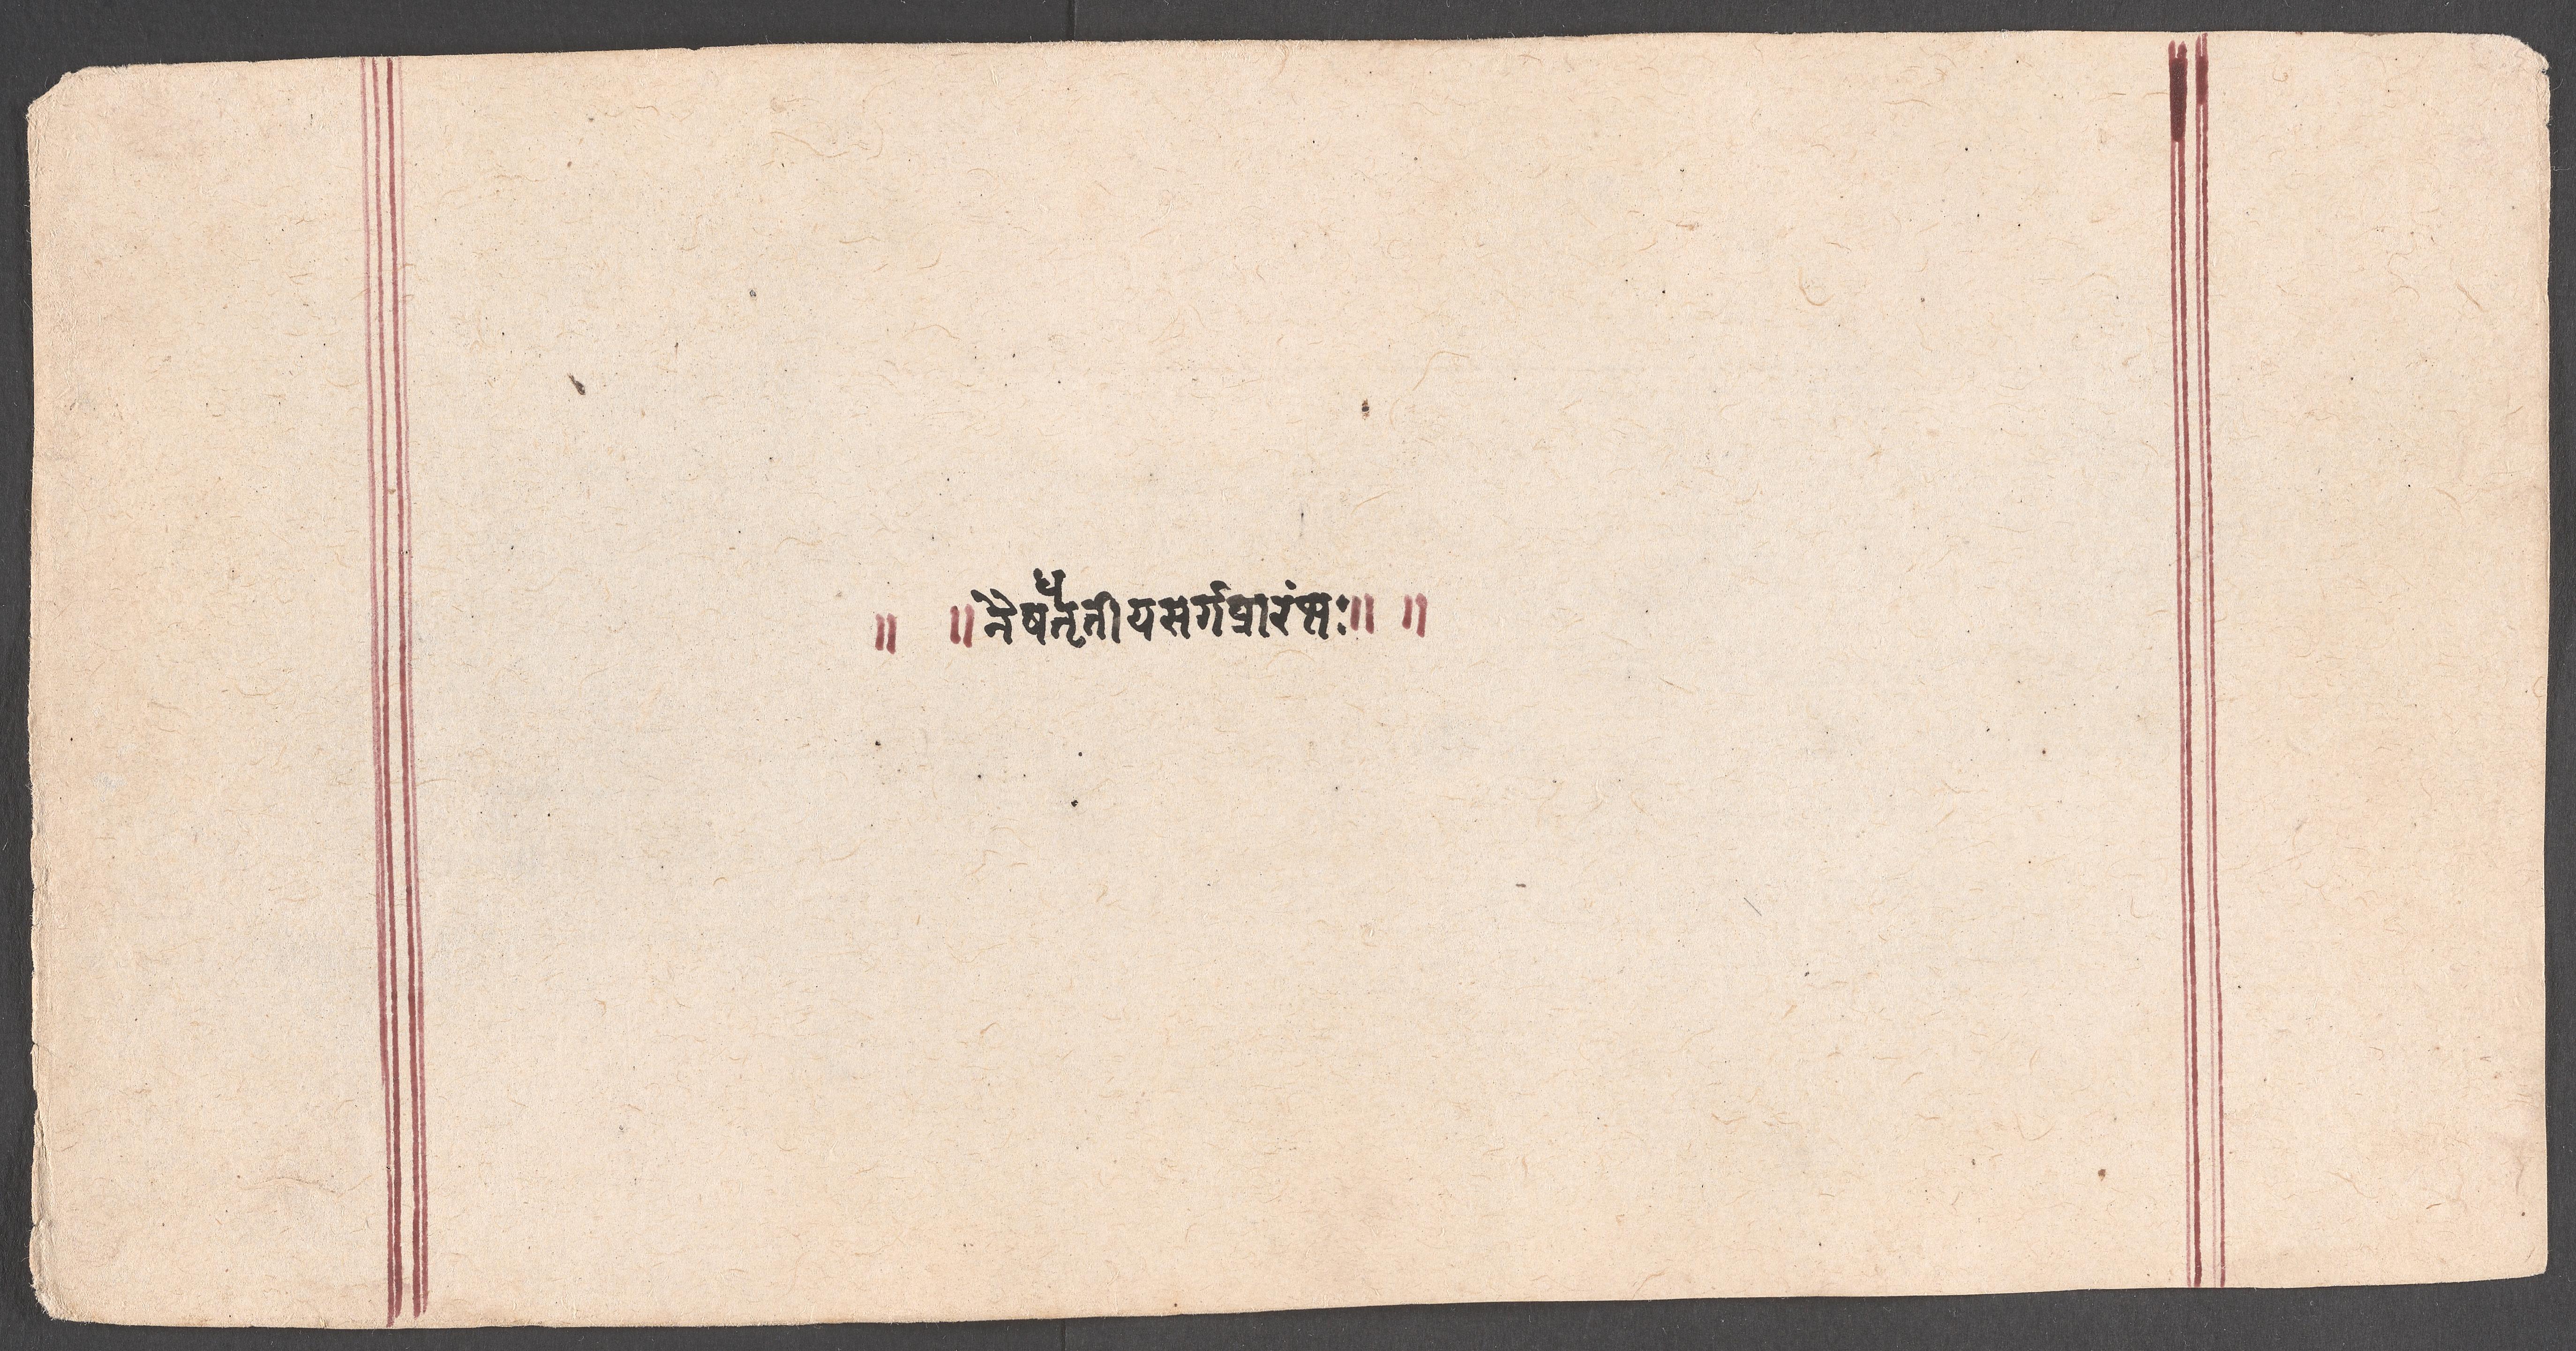 ॥ ॥ नैषधतृतीयसर्गप्रारंभः ॥ ॥